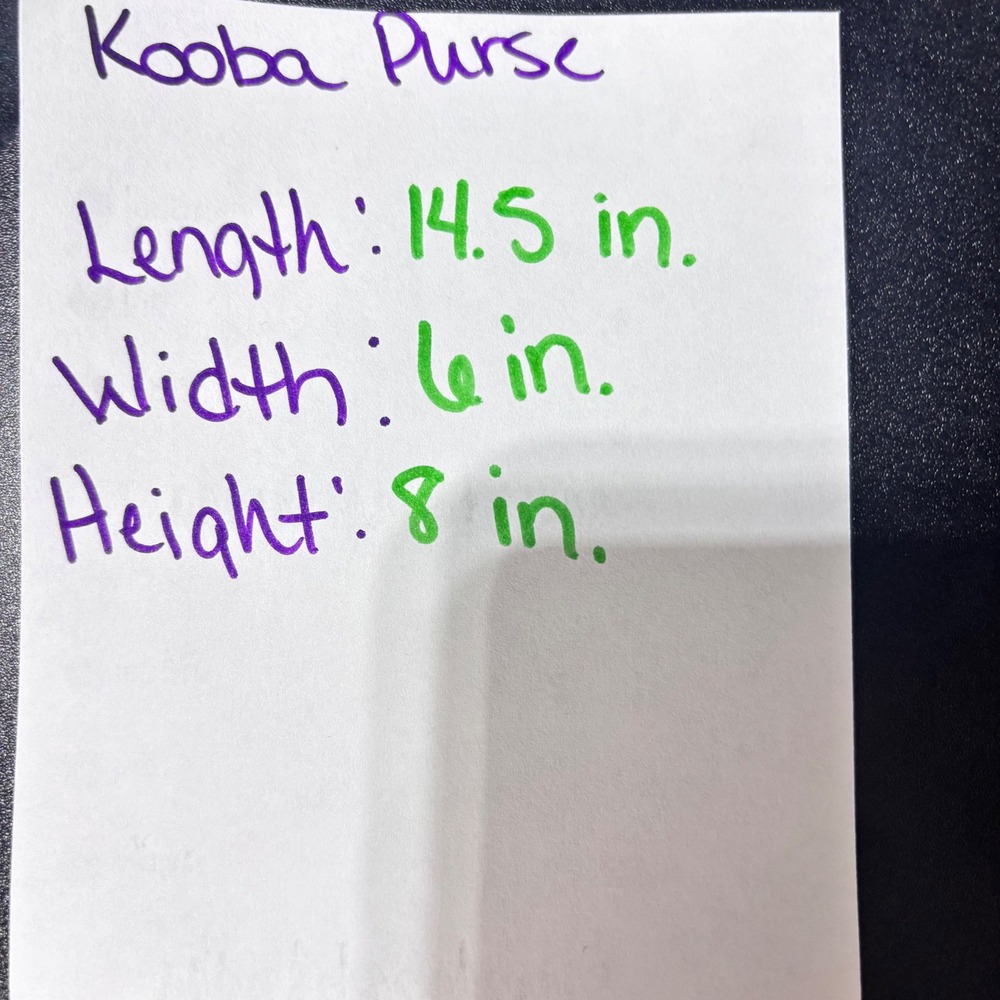 Kooba Purse
Length: 14.5 in.
Width: 6 in.
Height: 8 in.